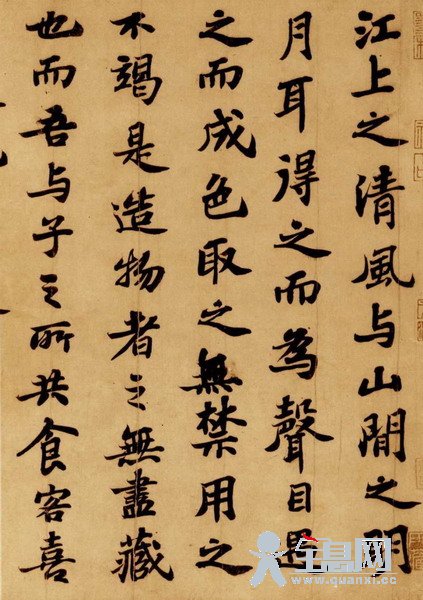 江上之清風与山間之明
月耳得之而為聲目遇
之而成色取之無禁用之
不竭是造物者之無盡藏
也而吾与子之所共食客喜
全息网
www.quanxi.cc